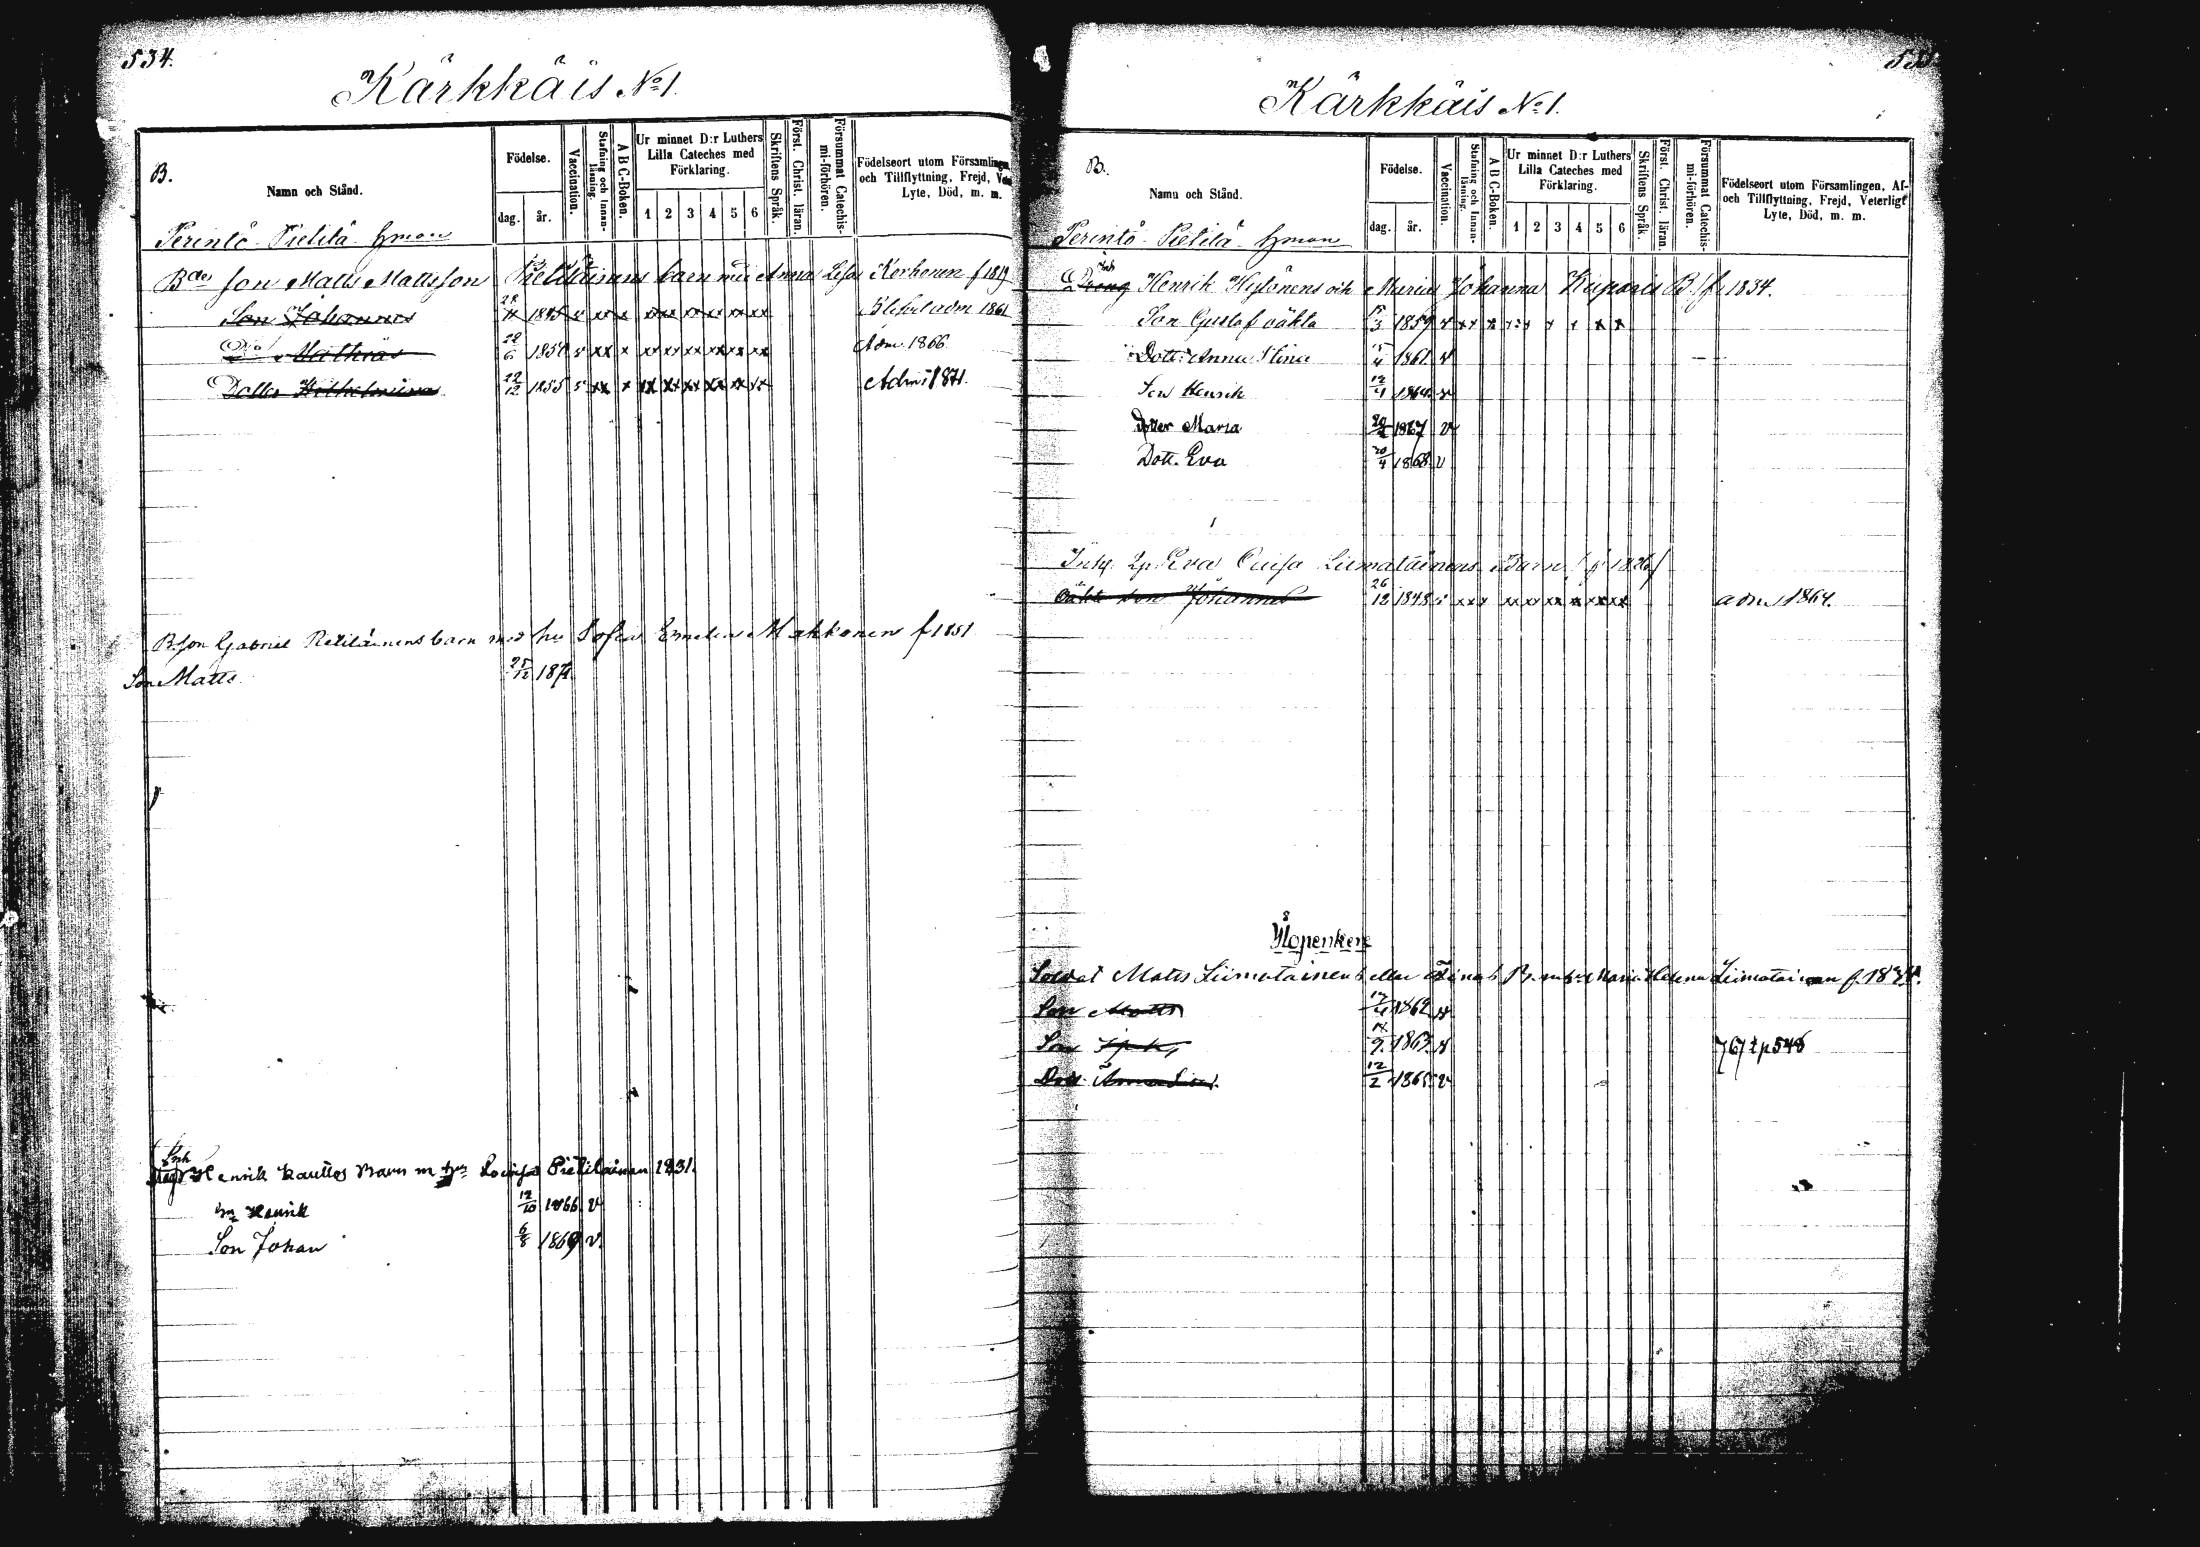 534.
Kärkkäis No 1.
B.
Namn och Stånd.
Födelse.
dag. år.
Vaccination.
Stafning och Innan-läsning.
A B C-Boken.
Ur minnet D:r Luthers
Lilla Cateches med
Förklaring.
1 2 3 4 5 6
Skriftens Språk.
Först. Christ. läran.
Försummat Catechis-mi-förhören.
Födelseort utom Församlingen,
och Tillflyttning, Frejd,
Lyte, Död, m. m.
Perintö - Pietilä
Bdes son Matts Mattsson Pietiläinens barn med Anna Lisa Korhonen f 1819
Son Johannes 28/11 1845 v xx x xx xx xx xx xx xx adm 1861
Mathias 22/6 1850 v xx x xx xx xx xx xx xx Adm 1866
Dotter Wilhelmina 22/12 1855 v xx x xx xx xx xx xx xx Adm 1871.
B. son Gabriel Pietiläinens barn med hu Sofia Emelia Makkonen f 1851
Son Matts 25/12 187
Inh Henrik Kautos Barn m hu Lovisa Pietiläinen 1831.
Son Henrik 12/10 1866 v
Son Johan 6/8 1869 v.
Kärkkäis No 1.
B.
Namn och Stånd.
Födelse.
dag. år.
Vaccination.
Stafning och Innan-läsning.
A B C-Boken.
Ur minnet D:r Luthers
Lilla Cateches med
Förklaring.
1 2 3 4 5 6
Skriftens Språk.
Först. Christ. läran.
Försummat Catechis-mi-förhören.
Födelseort utom Församlingen, Af-
och Tillflyttning, Frejd, Veterligt
Lyte, Död, m. m.
Perintö - Pietilä
Inh
Dreng Henrik Hytönens och Maria Johanna Kuparis B. f. 1834.
Son Gustaf oäkta 3 1859 v xx x x x x x x x
Dott: Anna Stina 15/4 1861 v
Son Henrik 1864 v
Dotter Maria 1867 v
Dott. Eva 20/4 1868 v
Inh. Eva Lovisa Liimatäinens Barn (f 1826)
Oäkta son Johannes 26/12 1848 v xx x xx xx xx x xx xx adm 1864.
Ylöpenkere
Soldat Matts Liimatainens eller B. m hu Maria Helena Liimatainen f. 18
Son Matts 1862 v
Son 9. 1863 v 767 t p 548
Dott. Anna Lisa 12/2 1865 v